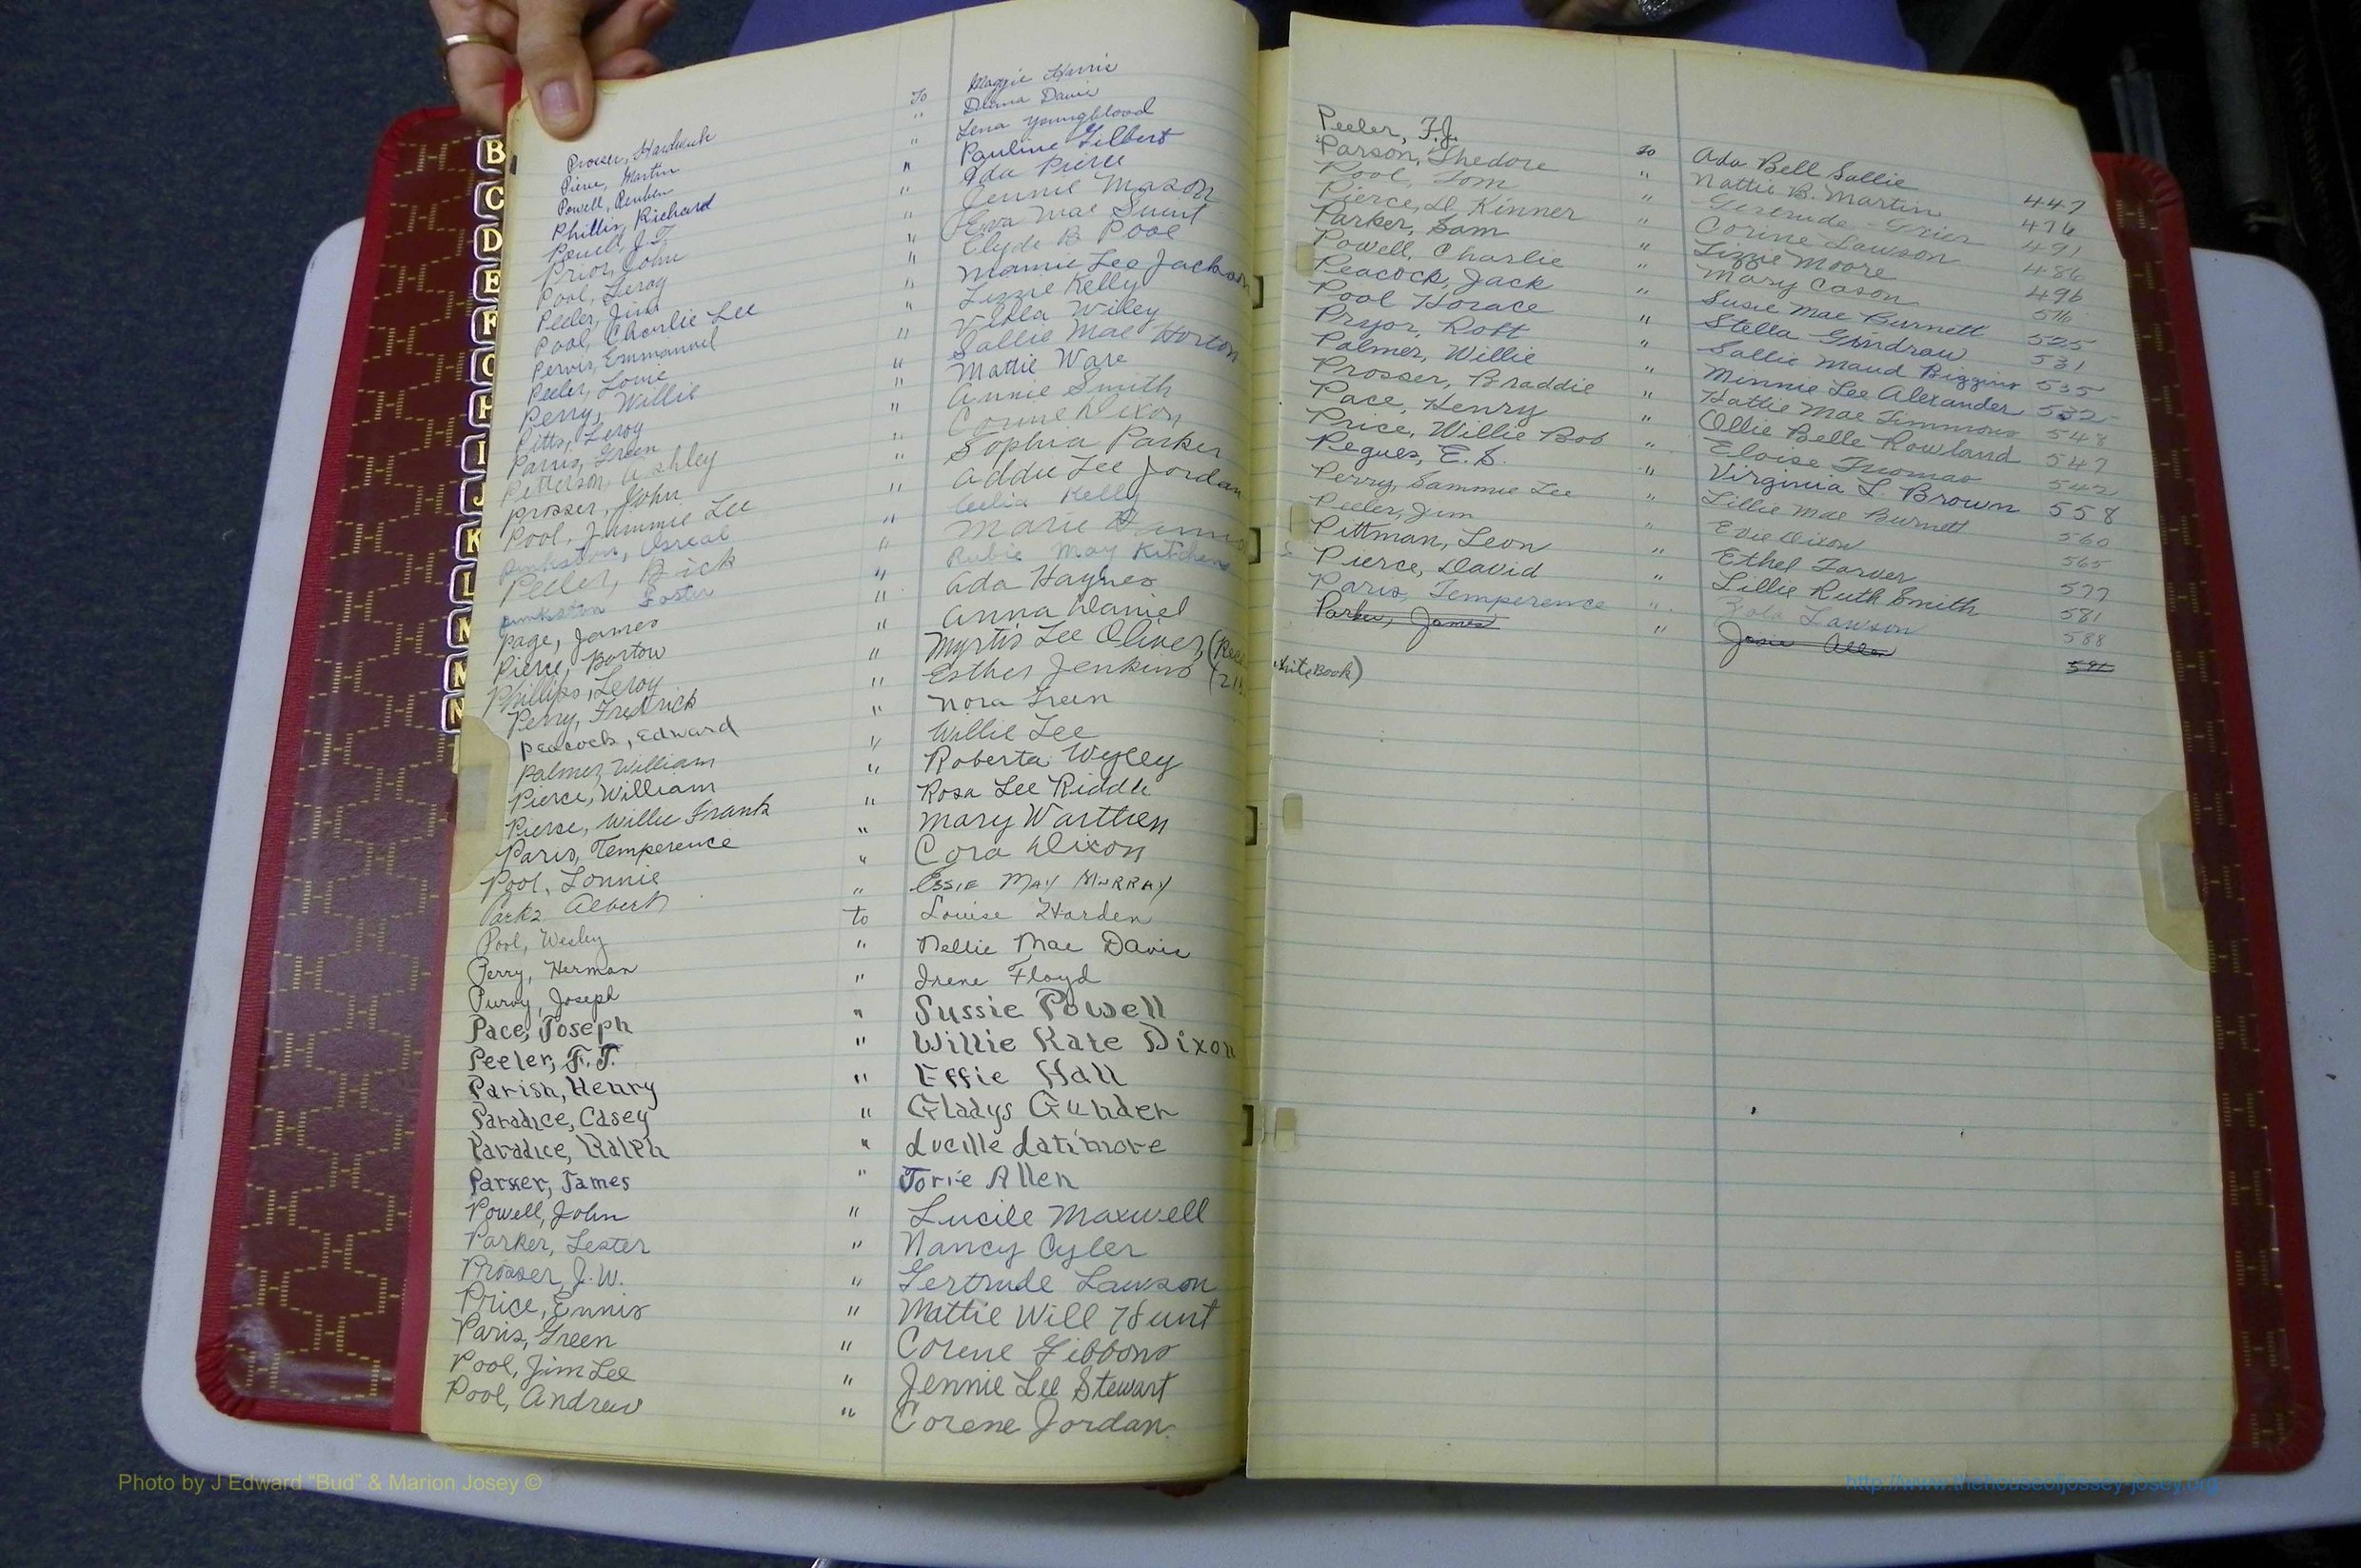 B
C
D
E
F
G
H
I
J
K
L
M
M
N
Prosser, Hardwick To Maggie Harris
Pierce, Martin " Davis
Powell, Reuben " Lena Youngblood
Phillis, Richard " Pauline Gilbert
Powell, J.T. " Ada Pierce
Prior, John " Jennie Mason
Pool, Leroy " Eva Mae Suint
Peeler, Jim " Clyde B Pool
Pool, Charlie Lee " Mamie Lee Jackson
Pervis, Emmanuel " Lizzie Kelly
Peeler, Louie " Velela Wiley
Perry, Willie " Sallie Mae Horton
Pitts, Leroy " Mattie Ware
Parris, Green " Annie Smith
Petterson, Ashley " Corine Dixon
Prosser, John " Sophia Parker
Pool, Jimmie Lee " Addie Lee Jordan
Pinkston, Osreal " Celia Kelly
Peeler, Bick " Marie
Pinkston Foster " Rubie May Kitchens
Page, James " Ada Haynes
Pierce, Bartow " Anna Daniel
Phillips, Leroy " Myrtis Lee Oliver, (Rec
Perry, Fredrick " Esther Jenkins (21
Peacock, Edward " Nora Green
Palmer, William " Willie Lee
Pierce, William " Roberta Wyley
Pierce, Willie Frank " Rosa Lee Riddle
Paris, Temperence " Mary Warthen
Pool, Lonnie " Cora Dixon
Parks Albert " Essie May Murray
Pool, Wesley to Louise Harden
Perry, Herman " Nellie Mae Davis
Purvy, Joseph " Irene Floyd
Pace, Joseph " Sussie Powell
Peeler, F.T. " Willie Kate Dixon
Parish, Henry " Effie Hall
Paradice, Casey " Gladys Gunder
Paradice, Ralph " Lucille Latimore
Parker, James " Jorie Allen
Powell, John " Lucile Maxwell
Parker, Lester " Nancy Cyler
Prosser, J.W. " Gertrude Lawson
Price, Ennis " Mattie Will Hunt
Paris, Green " Corene Gibbons
Pool, Jim Lee " Jennie Lee Stewart
Pool, Andrew " Corene Jordan
Peeler, F.J. To Ada Bell Sallie 447
Parson, Thedore " Nattie B. Martin 476
Pool, Tom " Gertrude Grier 491
Pierce, D. Kinner " Corine Lawson 486
Parker, Sam " Lizzie Moore 496
Powell, Charlie " Mary Cason 516
Peacock, Jack " Susie Mae Burnett 525
Pool Horace " Stella Gindraw 531
Pryor, Robt " Sallie Maud Biggins 535
Palmer, Willie " Minnie Lee Alexander 532
Prosser, Braddie " Hattie Mae Timmons 548
Pace, Henry " Ollie Belle Rowland 547
Price, Willie Bob " Eloise Thomas 542
Pegues, E.S. " Virginia L. Brown 558
Perry, Sammie Lee " Lillie Mae Burnett 560
Peeler, Jim " Evie Dixon 565
Pittman, Leon " Ethel Tarver 577
Pierce, David " Lillie Ruth Smith 581
Paris, Temperence " Zola Lawson 588
Parker, James " Josie Allen
white Book)
Photo by J Edward "Bud" & Marion Josey ©
http://www.thehouseofjossey-josey.org